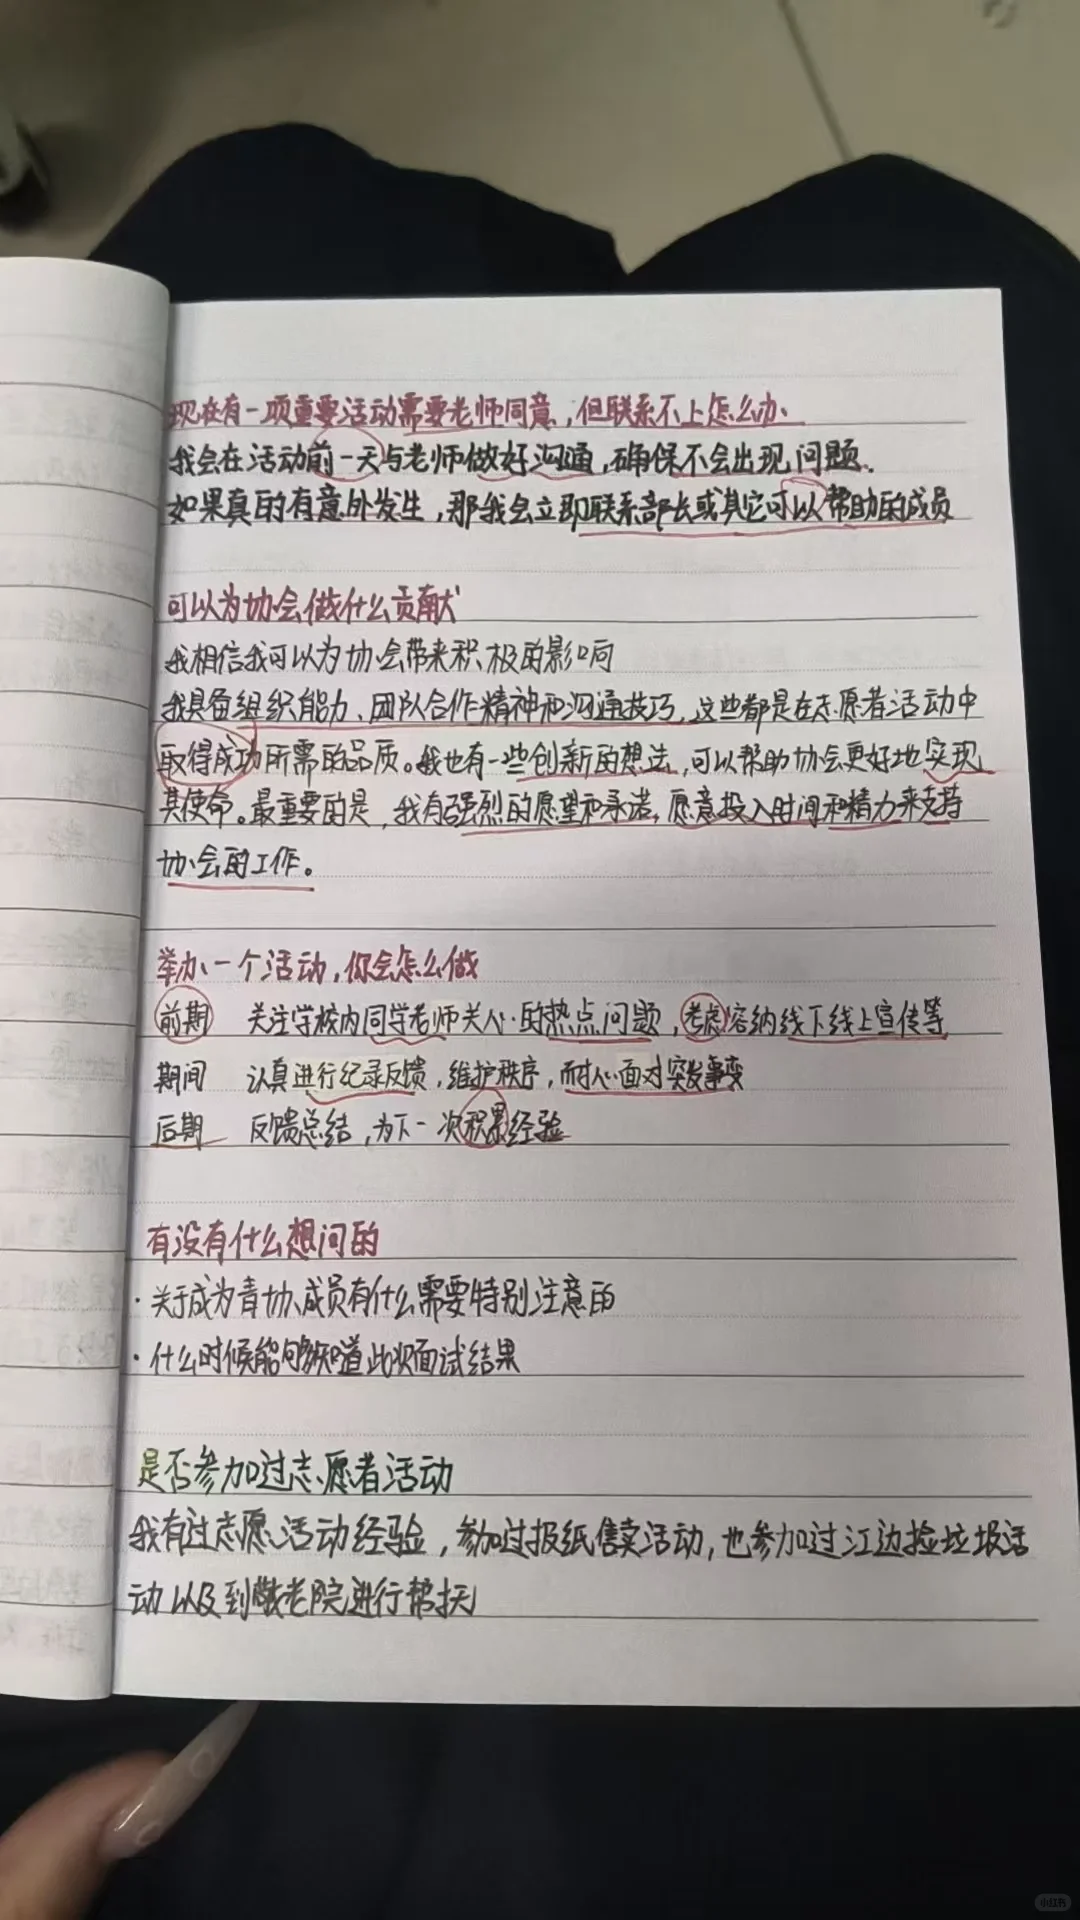 现在有一项重要活动需要老师同意，但联系不上怎么办、
我会在活动前一天与老师做好沟通，确保不会出现问题.
如果真的有意外发生，那我会立即联系部长或其它可以帮助的成员
可以为协会做什么贡献
我相信我可以为协会带来积极的影响
我具备组织能力、团队合作精神和沟通技巧，这些都是在志愿者活动中
取得成功所需的品质。我也有一些创新的想法，可以帮助协会更好地实现
其使命。最重要的是，我有强烈的愿望和承诺，愿意投入时间和精力来支持
协会的工作。
举办一个活动，你会怎么做
前期 关注学校内同学老师关心的热点问题，考虑容纳线下线上宣传等
期间 认真进行纪录反馈，维护秩序，耐心面对突发事变
后期 反馈总结，为下一次积累经验
有没有什么想问的
·关于成为青协成员有什么需要特别注意的
·什么时候能够知道此次面试结果
是否参加过志愿者活动
我有过志愿活动经验，参加过报纸售卖活动，也参加过江边捡垃圾活
动以及到敬老院进行帮扶
小红书